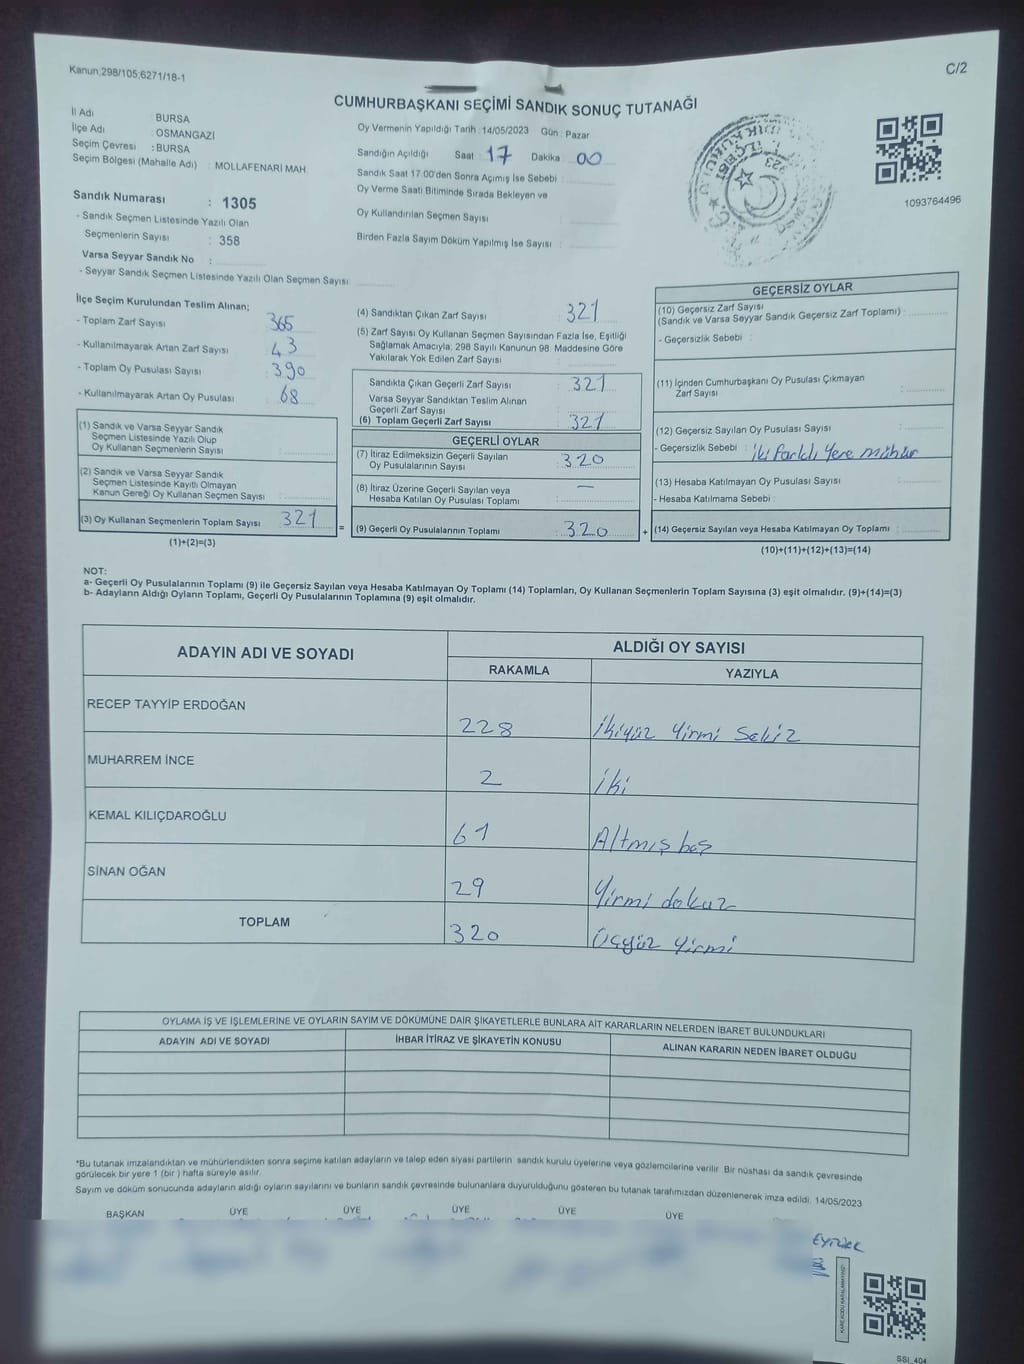 Kanun,298/105,6271/18-1
C/2
CUMHURBAŞKANI SEÇİMİ SANDIK SONUÇ TUTANAĞI
İl Adı : BURSA
İlçe Adı : OSMANGAZİ
Seçim Çevresi : BURSA
Seçim Bölgesi (Mahalle Adı) : MOLLAFENARİ MAH.
Oy Vermenin Yapıldığı Tarih :14/05/2023 Gün : Pazar
Sandığın Açıldığı Saat : 17 Dakika : 00
Sandık Saat 17.00'den Sonra Açımış İse Sebebi :
Oy Verme Saati Bitiminde Sırada Bekleyen ve
Oy Kullandırılan Seçmen Sayısı :
Birden Fazla Sayım Döküm Yapılmış İse Sayısı :
1093764496
Sandık Numarası : 1305
- Sandık Seçmen Listesinde Yazılı Olan
Seçmenlerin Sayısı : 358
Varsa Seyyar Sandık No :
- Seyyar Sandık Seçmen Listesinde Yazılı Olan Seçmen Sayısı :
İlçe Seçim Kurulundan Teslim Alınan;
- Toplam Zarf Sayısı : 365
- Kullanılmayarak Artan Zarf Sayısı : 43
- Toplam Oy Pusulası Sayısı : 390
- Kullanılmayarak Artan Oy Pusulası : 68
(1) Sandık ve Varsa Seyyar Sandık
Seçmen Listesinde Yazılı Olup
Oy Kullanan Seçmenlerin Sayısı :
(2) Sandık ve Varsa Seyyar Sandık
Seçmen Listesinde Kayıtlı Olmayan
Kanun Gereği Oy Kullanan Seçmen Sayısı :
(3) Oy Kullanan Seçmenlerin Toplam Sayısı : 321
(1)+(2)=(3)
(4) Sandıktan Çıkan Zarf Sayısı : 321
(5) Zarf Sayısı Oy Kullanan Seçmen Sayısından Fazla İse, Eşitliği
Sağlamak Amacıyla; 298 Sayılı Kanunun 98. Maddesine Göre
Yakılarak Yok Edilen Zarf Sayısı :
Sandıkta Çıkan Geçerli Zarf Sayısı : 321
Varsa Seyyar Sandıktan Teslim Alınan
Geçerli Zarf Sayısı :
(6) Toplam Geçerli Zarf Sayısı : 321
GEÇERLİ OYLAR
(7) İtiraz Edilmeksizin Geçerli Sayılan
Oy Pusulalarının Sayısı : 320
(8) İtiraz Üzerine Geçerli Sayılan veya
Hesaba Katılan Oy Pusulası Toplamı : —
= (9) Geçerli Oy Pusulalarının Toplamı : 320
GEÇERSİZ OYLAR
(10) Geçersiz Zarf Sayısı
(Sandık ve Varsa Seyyar Sandık Geçersiz Zarf Toplamı) :
- Geçersizlik Sebebi :
(11) İçinden Cumhurbaşkanı Oy Pusulası Çıkmayan
Zarf Sayısı :
(12) Geçersiz Sayılan Oy Pusulası Sayısı :
- Geçersizlik Sebebi : iki farklı Yere mühür
(13) Hesaba Katılmayan Oy Pusulası Sayısı :
- Hesaba Katılmama Sebebi :
+ (14) Geçersiz Sayılan veya Hesaba Katılmayan Oy Toplamı :
(10)+(11)+(12)+(13)=(14)
NOT:
a- Geçerli Oy Pusulalarının Toplamı (9) ile Geçersiz Sayılan veya Hesaba Katılmayan Oy Toplamı (14) Toplamları, Oy Kullanan Seçmenlerin Toplam Sayısına (3) eşit olmalıdır. (9)+(14)=(3)
b- Adayların Aldığı Oyların Toplamı, Geçerli Oy Pusulalarının Toplamına (9) eşit olmalıdır.
ADAYIN ADI VE SOYADI
ALDIĞI OY SAYISI
RAKAMLA YAZIYLA
RECEP TAYYİP ERDOĞAN 228 İkiyüz Yirmi Sekiz
MUHARREM İNCE 2 İki
KEMAL KILIÇDAROĞLU 61 Altmış beş
SİNAN OĞAN 29 Yirmi dokuz
TOPLAM 320 Üçyüz Yirmi
OYLAMA İŞ VE İŞLEMLERİNE VE OYLARIN SAYIM VE DÖKÜMÜNE DAİR ŞİKAYETLERLE BUNLARA AİT KARARLARIN NELERDEN İBARET BULUNDUKLARI
ADAYIN ADI VE SOYADI İHBAR İTİRAZ VE ŞİKAYETİN KONUSU ALINAN KARARIN NEDEN İBARET OLDUĞU
*Bu tutanak imzalandıktan ve mühürlendikten sonra seçime katılan adayların ve talep eden siyasi partilerin sandık kurulu üyelerine veya gözlemcilerine verilir. Bir nüshası da sandık çevresinde
görülecek bir yere 1 (bir ) hafta süreyle asılır.
Sayım ve döküm sonucunda adayların aldığı oyların sayılarını ve bunların sandık çevresinde bulunanlara duyurulduğunu gösteren bu tutanak tarafımızdan düzenlenerek imza edildi. 14/05/2023
BAŞKAN ÜYE ÜYE ÜYE ÜYE ÜYE
KARE KODU KARALAMAYINIZ!
SSI_404